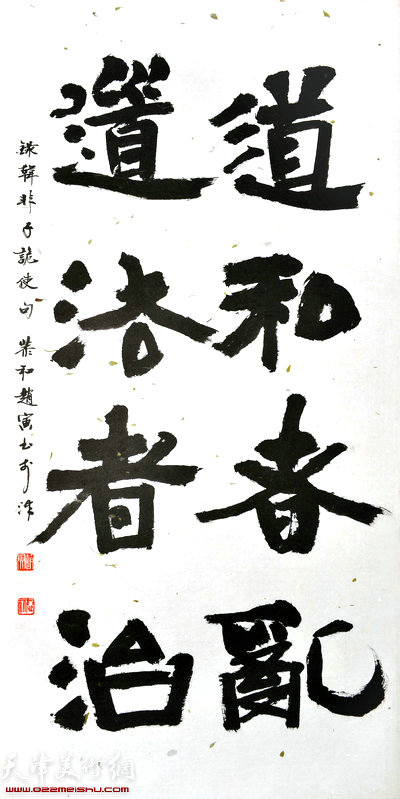 道私者亂
道法者治
錄韓非子詭使句 趙寅書於津
天津美術網
www.022meishu.com